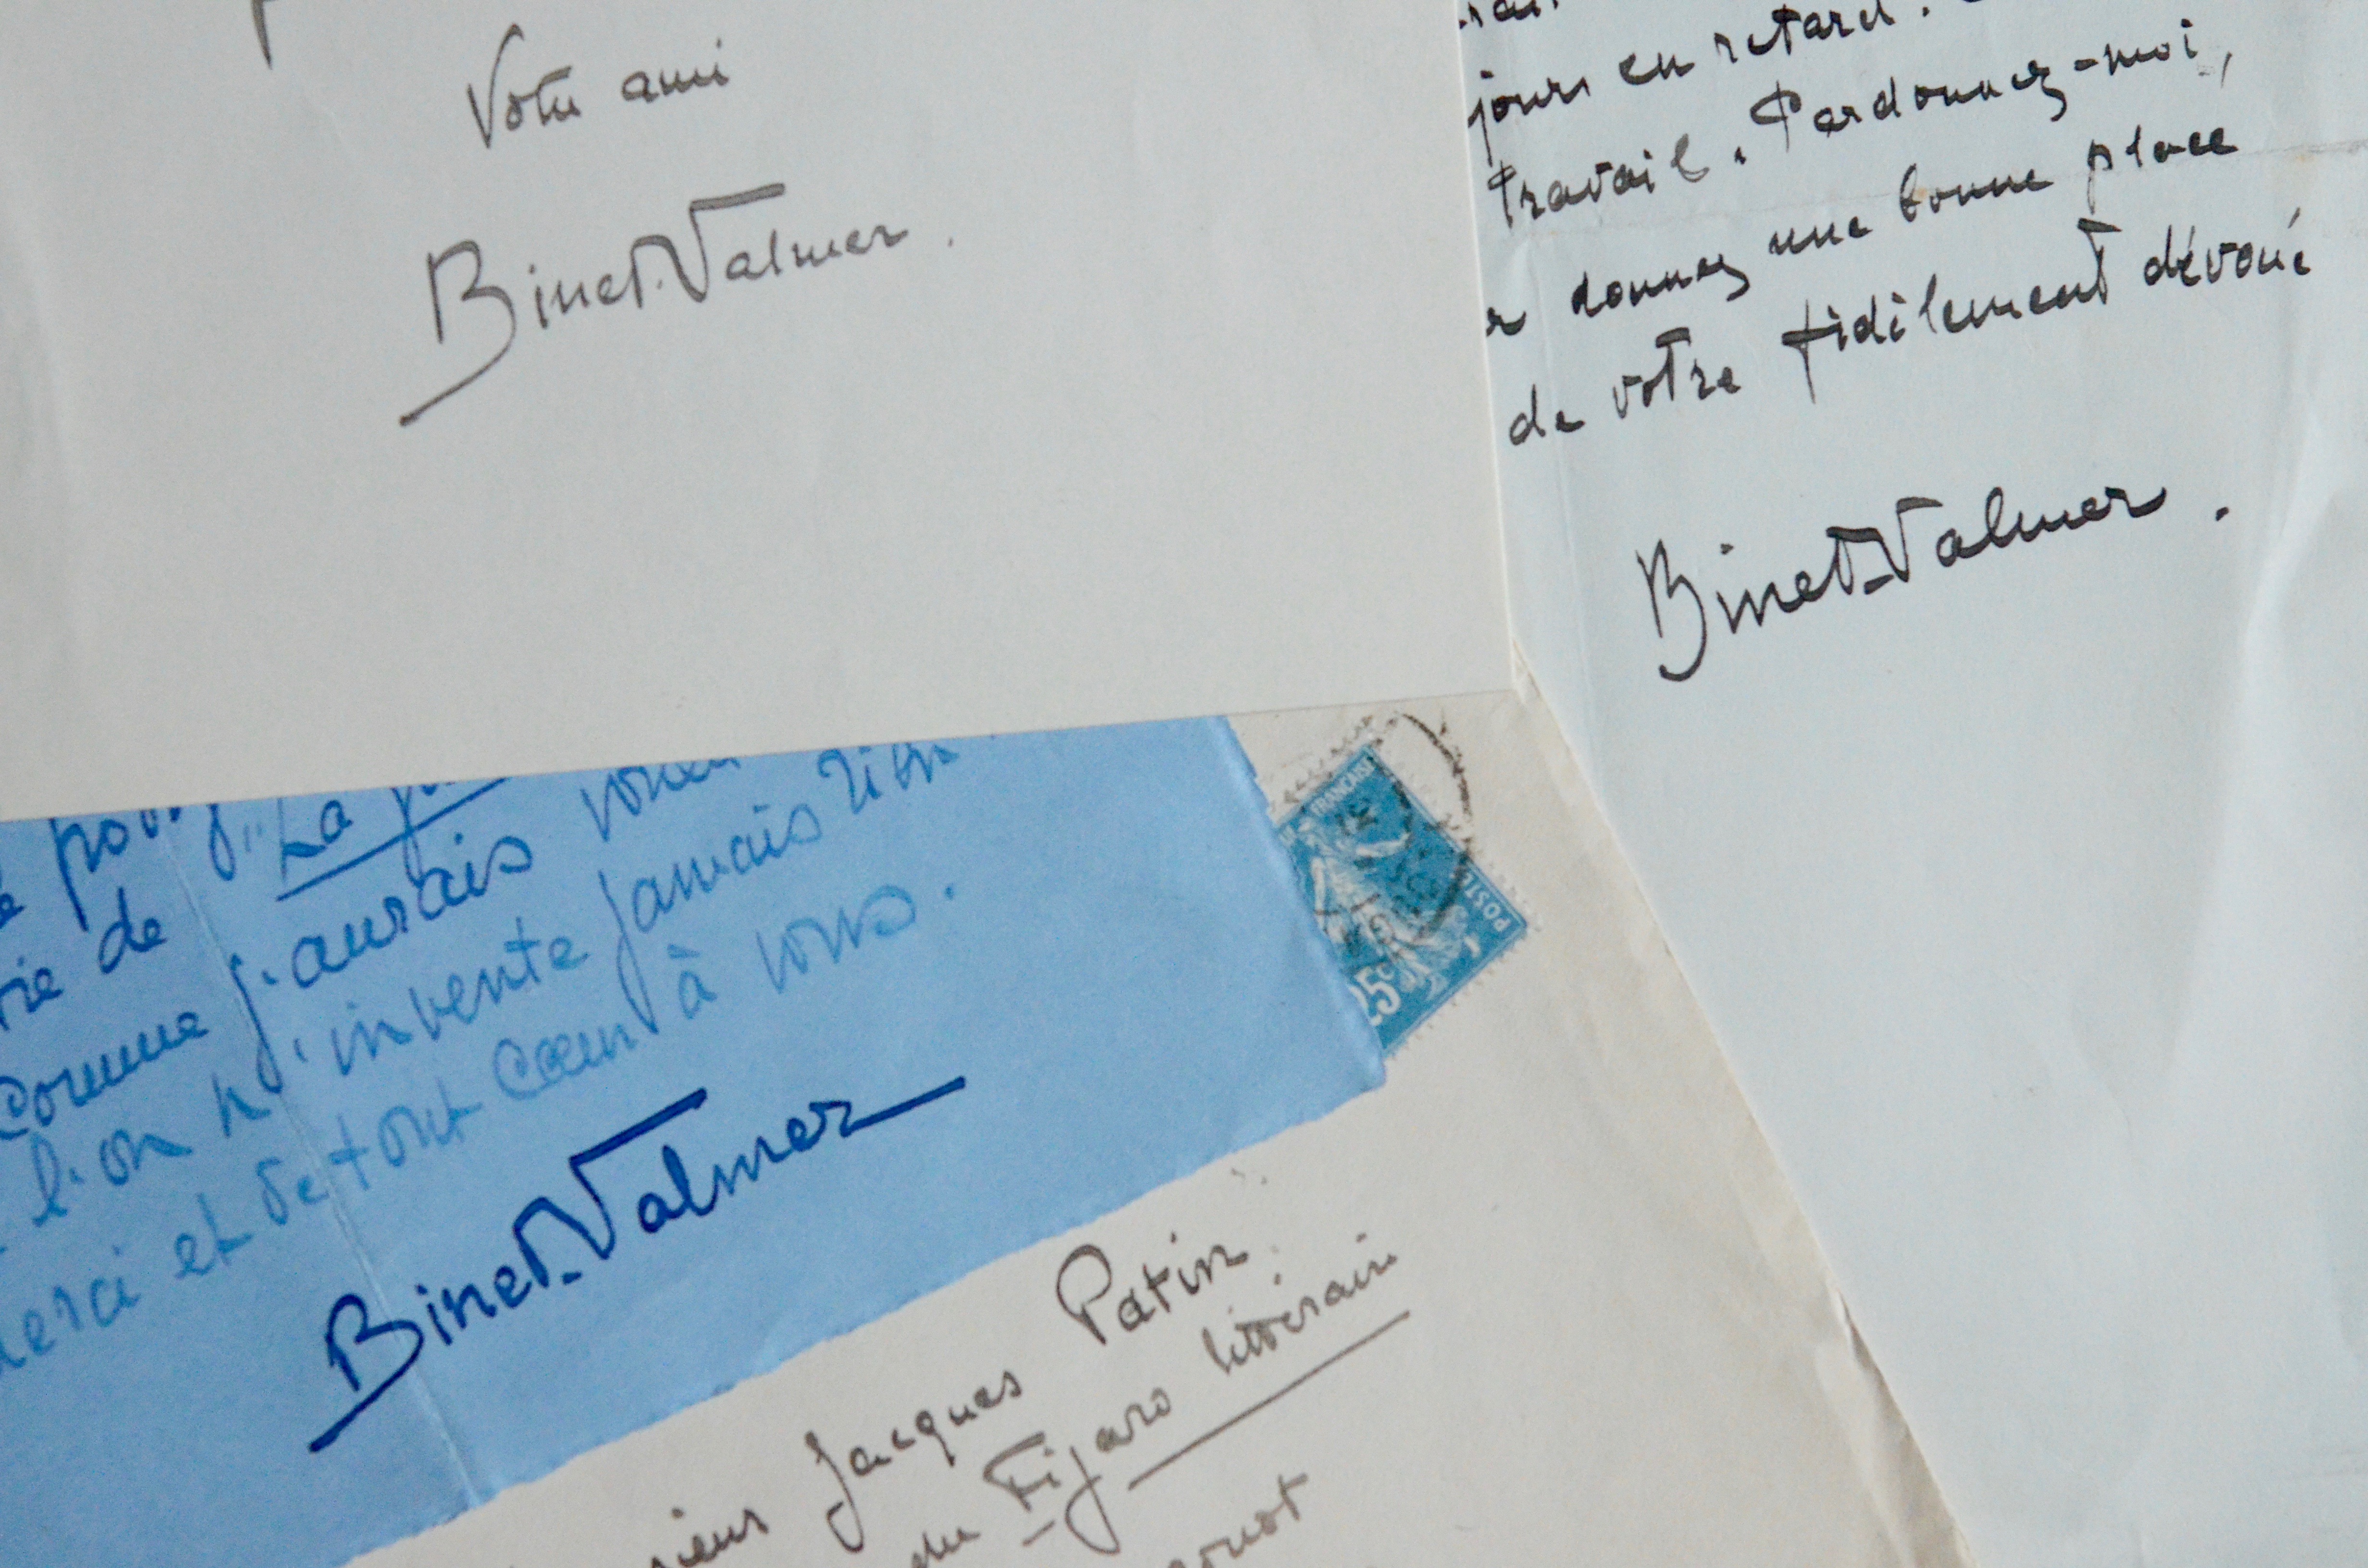 Votre ami
Binet-Valmer.
jours en retard.
travail. Pardonnez-moi,
donnez une bonne place
de votre fidèlement dévoué
Binet-Valmer.
La
de
Comme j'aurais
l'on n'invente jamais
et de tout cœur à vous.
Binet-Valmer
FRANÇAISE
POSTES
25c
Jacques Patin
du Figaro littéraire